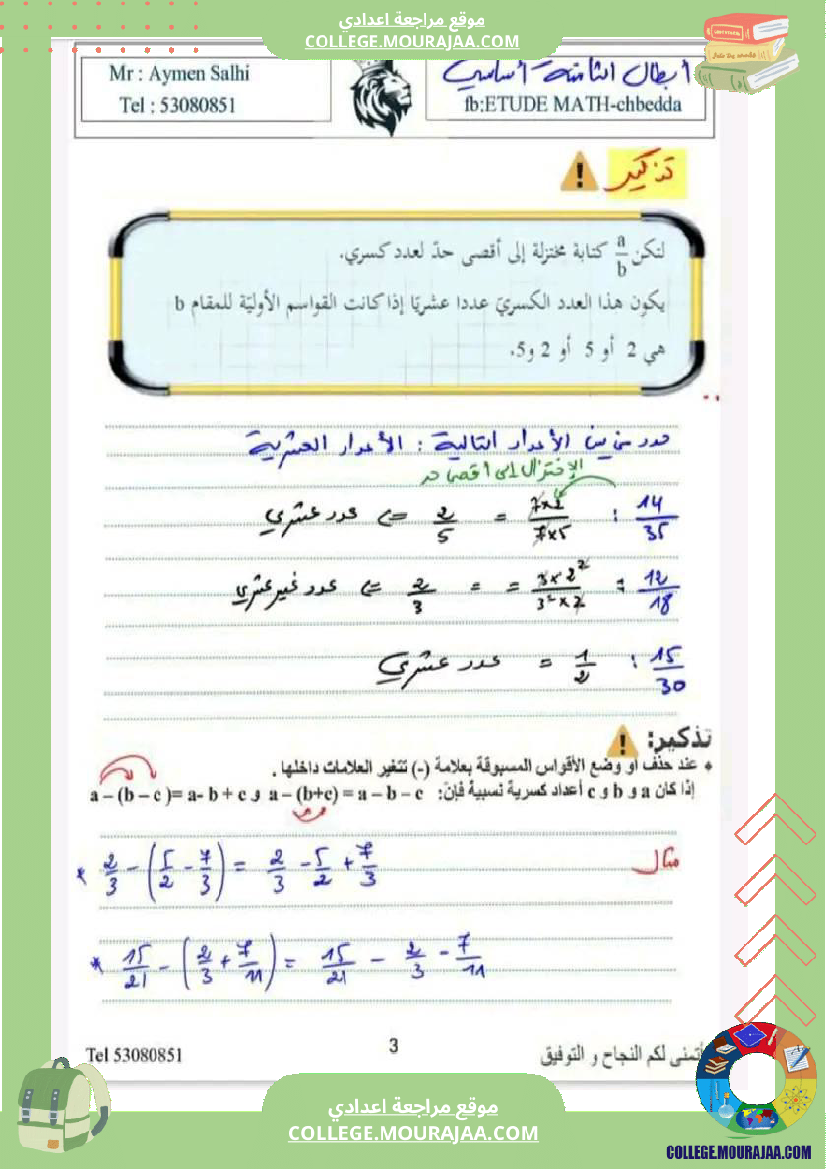 موقع مراجعة اعدادي
COLLEGE.MOURAJAA.COM
Mr : Aymen Salhi
Tel : 53080851
أبطال الثامنة أساسي
fb:ETUDE MATH-chbedda
تذكير
لتكن a/b كتابة مختزلة إلى أقصى حدّ لعدد كسري.
يكون هذا العدد الكسريّ عددا عشريّا إذا كانت القواسم الأوليّة للمقام b
هي 2 أو 5 أو 2 و5.
حدد من بين الأعداد التالية : الأعداد العشرية
الإختزال إلى أقصى حد
14/35 : 7×2/7×5 = 2/5 => عدد عشري
12/18 : 3×2²/3²×2 = = 2/3 => عدد غير عشري
15/30 : 1/2 = عدد عشري
تذكير:
عند حذف او وضع الأقواس المسبوقة بعلامة (-) تتغير العلامات داخلها .
إذا كان a و b و c أعداد كسرية نسبية فإنّ: a – (b+c) = a – b – c و a – (b – c )= a- b + c
مثال
* 2/3 - (5/2 - 7/3) = 2/3 - 5/2 + 7/3
* 15/21 - (2/3 + 7/11) = 15/21 - 2/3 - 7/11
Tel 53080851
3
أتمنى لكم النجاح و التوفيق
موقع مراجعة اعدادي
COLLEGE.MOURAJAA.COM
COLLEGE.MOURAJAA.COM